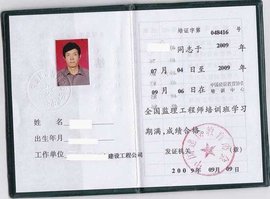 姓名
出生年月
工作单位 建设工程公司
培证字第 048416 号
同志于 2009 年
07 月 04 日至 2009 年
09 月 06 日在 培训中心
全国监理工程师培训班学习
期满,成绩合格。
发证机关 (章)
2009年09月09日